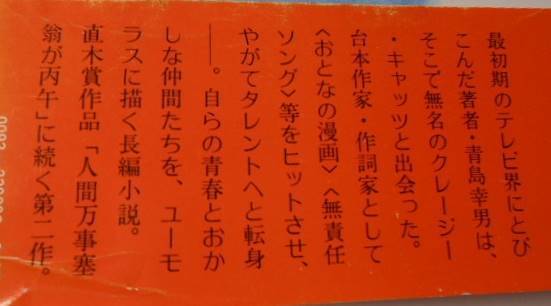 最初期のテレビ界にとび
こんだ著者・青島幸男は、
そこで無名のクレージー
・キャッツと出会った。
台本作家・作詞家として
〈おとなの漫画〉〈無責任
ソング〉等をヒットさせ、
やがてタレントへと転身
──。自らの青春とおか
しな仲間たちを、ユーモ
ラスに描く長編小説。
直木賞作品「人間万事塞
翁が丙午」に続く第二作。